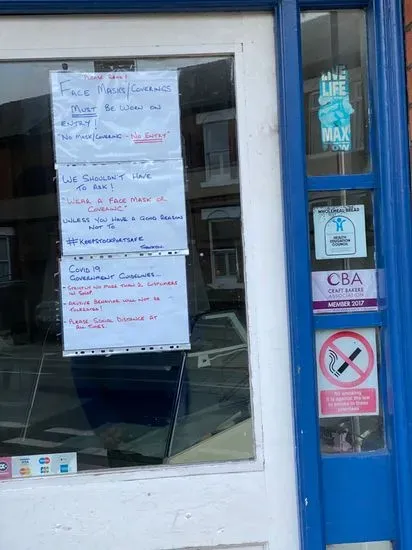 Please Read!
Face Masks/Coverings
Must be worn on
entry!
"No Mask/Covering - No Entry"
We Shouldn't Have
to ask!
"Wear a Face Mask or
Covering"
unless you have a good reason
not to
#KeepStockportSafe
Thankyou.
Covid 19
Government Guidelines...
- Strictly no more than 2 customers
in shop
- Abusive Behavior will not be
tolerated!
- Please Social Distance at
all times.
LIVE
LIFE
TO THE
MAX
NOW
WHOLEMEAL BREAD
HEALTH
EDUCATION
COUNCIL
CBA
CRAFT BAKERS
ASSOCIATION
MEMBER 2017
No smoking
It is against the law
to smoke in these
premises
VISA